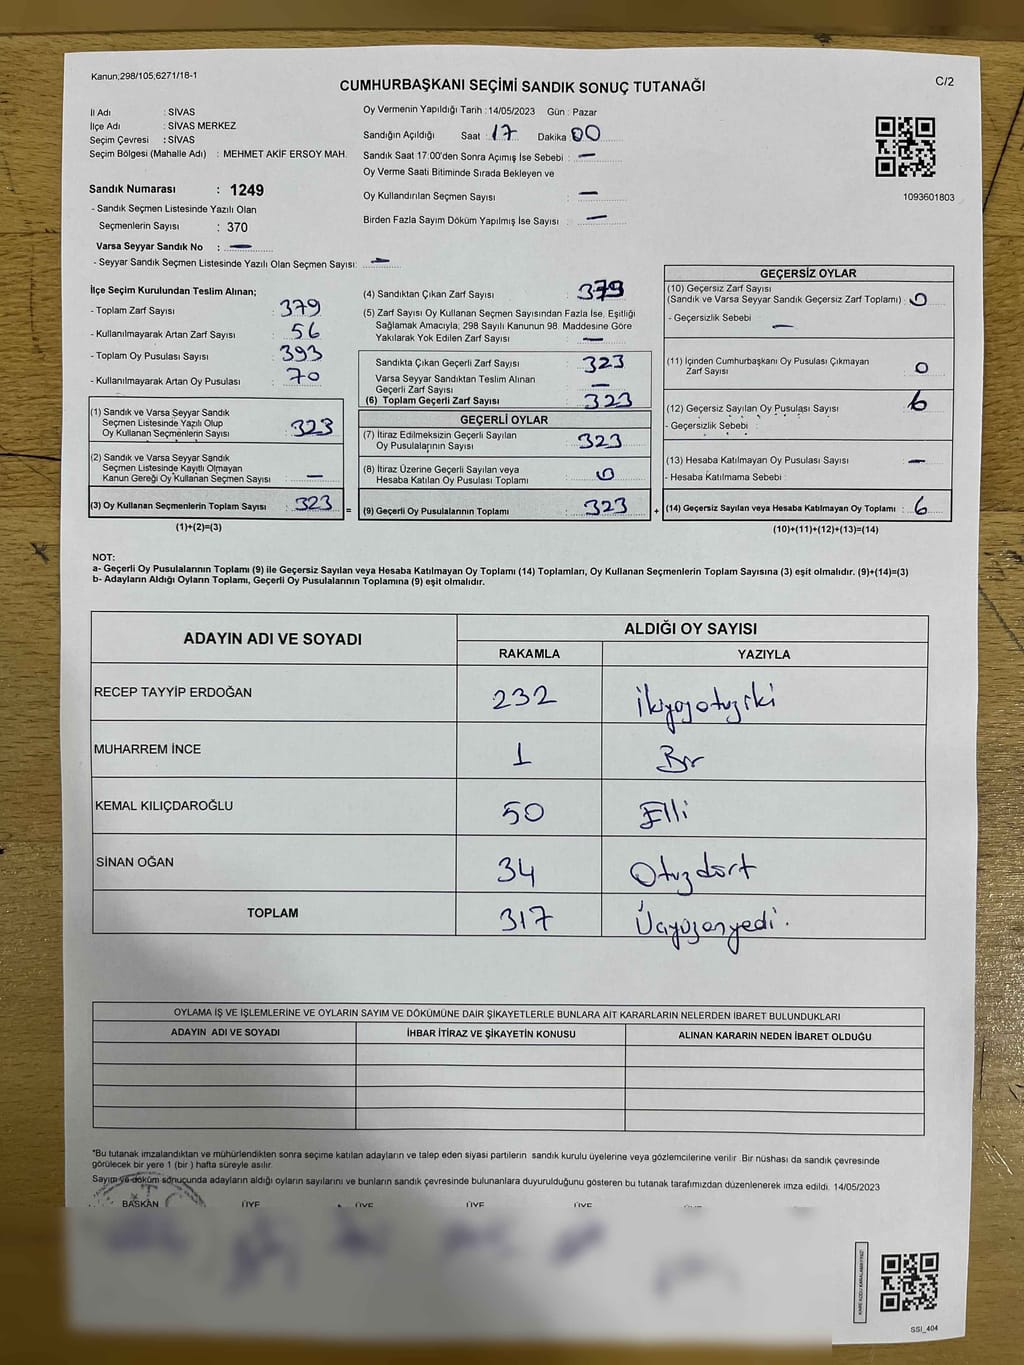 Kanun;298/105;6271/18-1
C/2
CUMHURBAŞKANI SEÇİMİ SANDIK SONUÇ TUTANAĞI
İl Adı : SİVAS
İlçe Adı : SİVAS MERKEZ
Seçim Çevresi : SİVAS
Seçim Bölgesi (Mahalle Adı) : MEHMET AKİF ERSOY MAH.
Sandık Numarası : 1249
- Sandık Seçmen Listesinde Yazılı Olan
Seçmenlerin Sayısı : 370
Varsa Seyyar Sandık No : —
- Seyyar Sandık Seçmen Listesinde Yazılı Olan Seçmen Sayısı: —
Oy Vermenin Yapıldığı Tarih : 14/05/2023 Gün : Pazar
Sandığın Açıldığı Saat : 17 Dakika : 00
Sandık Saat 17:00'den Sonra Açımış İse Sebebi : —
Oy Verme Saati Bitiminde Sırada Bekleyen ve
Oy Kullandırılan Seçmen Sayısı : —
Birden Fazla Sayım Döküm Yapılmış İse Sayısı : —
1093601803
İlçe Seçim Kurulundan Teslim Alınan;
- Toplam Zarf Sayısı : 379
- Kullanılmayarak Artan Zarf Sayısı : 56
- Toplam Oy Pusulası Sayısı : 393
- Kullanılmayarak Artan Oy Pusulası : 70
(1) Sandık ve Varsa Seyyar Sandık
Seçmen Listesinde Yazılı Olup
Oy Kullanan Seçmenlerin Sayısı : 323
(2) Sandık ve Varsa Seyyar Sandık
Seçmen Listesinde Kayıtlı Olmayan
Kanun Gereği Oy Kullanan Seçmen Sayısı : —
(3) Oy Kullanan Seçmenlerin Toplam Sayısı : 323
(1)+(2)=(3)
(4) Sandıktan Çıkan Zarf Sayısı : 379
(5) Zarf Sayısı Oy Kullanan Seçmen Sayısından Fazla İse, Eşitliği
Sağlamak Amacıyla; 298 Sayılı Kanunun 98. Maddesine Göre
Yakılarak Yok Edilen Zarf Sayısı : —
Sandıkta Çıkan Geçerli Zarf Sayısı : 323
Varsa Seyyar Sandıktan Teslim Alınan
Geçerli Zarf Sayısı : —
(6) Toplam Geçerli Zarf Sayısı : 323
GEÇERLİ OYLAR
(7) İtiraz Edilmeksizin Geçerli Sayılan
Oy Pusulalarının Sayısı : 323
(8) İtiraz Üzerine Geçerli Sayılan veya
Hesaba Katılan Oy Pusulası Toplamı : 0
= (9) Geçerli Oy Pusulalarının Toplamı : 323 +
GEÇERSİZ OYLAR
(10) Geçersiz Zarf Sayısı
(Sandık ve Varsa Seyyar Sandık Geçersiz Zarf Toplamı) : 0
- Geçersizlik Sebebi : —
(11) İçinden Cumhurbaşkanı Oy Pusulası Çıkmayan
Zarf Sayısı : 0
(12) Geçersiz Sayılan Oy Pusulası Sayısı : 6
- Geçersizlik Sebebi :
(13) Hesaba Katılmayan Oy Pusulası Sayısı : —
- Hesaba Katılmama Sebebi :
(14) Geçersiz Sayılan veya Hesaba Katılmayan Oy Toplamı : 6
(10)+(11)+(12)+(13)=(14)
NOT:
a- Geçerli Oy Pusulalarının Toplamı (9) ile Geçersiz Sayılan veya Hesaba Katılmayan Oy Toplamı (14) Toplamları, Oy Kullanan Seçmenlerin Toplam Sayısına (3) eşit olmalıdır. (9)+(14)=(3)
b- Adayların Aldığı Oyların Toplamı, Geçerli Oy Pusulalarının Toplamına (9) eşit olmalıdır.
ADAYIN ADI VE SOYADI ALDIĞI OY SAYISI
RAKAMLA YAZIYLA
RECEP TAYYİP ERDOĞAN 232 İkiyüzotuziki
MUHARREM İNCE 1 Bir
KEMAL KILIÇDAROĞLU 50 Elli
SİNAN OĞAN 34 Otuzdört
TOPLAM 317 Üçyüzonyedi.
OYLAMA İŞ VE İŞLEMLERİNE VE OYLARIN SAYIM VE DÖKÜMÜNE DAİR ŞİKAYETLERLE BUNLARA AİT KARARLARIN NELERDEN İBARET BULUNDUKLARI
ADAYIN ADI VE SOYADI İHBAR İTİRAZ VE ŞİKAYETİN KONUSU ALINAN KARARIN NEDEN İBARET OLDUĞU
"Bu tutanak imzalandıktan ve mühürlendikten sonra seçime katılan adayların ve talep eden siyasi partilerin sandık kurulu üyelerine veya gözlemcilerine verilir. Bir nüshası da sandık çevresinde
görülecek bir yere 1 (bir) hafta süreyle asılır.
Sayım ve döküm sonucunda adayların aldığı oyların sayılarını ve bunların sandık çevresinde bulunanlara duyurulduğunu gösteren bu tutanak tarafımızdan düzenlenerek imza edildi. 14/05/2023
BAŞKAN ÜYE ÜYE ÜYE ÜYE
SSI_404